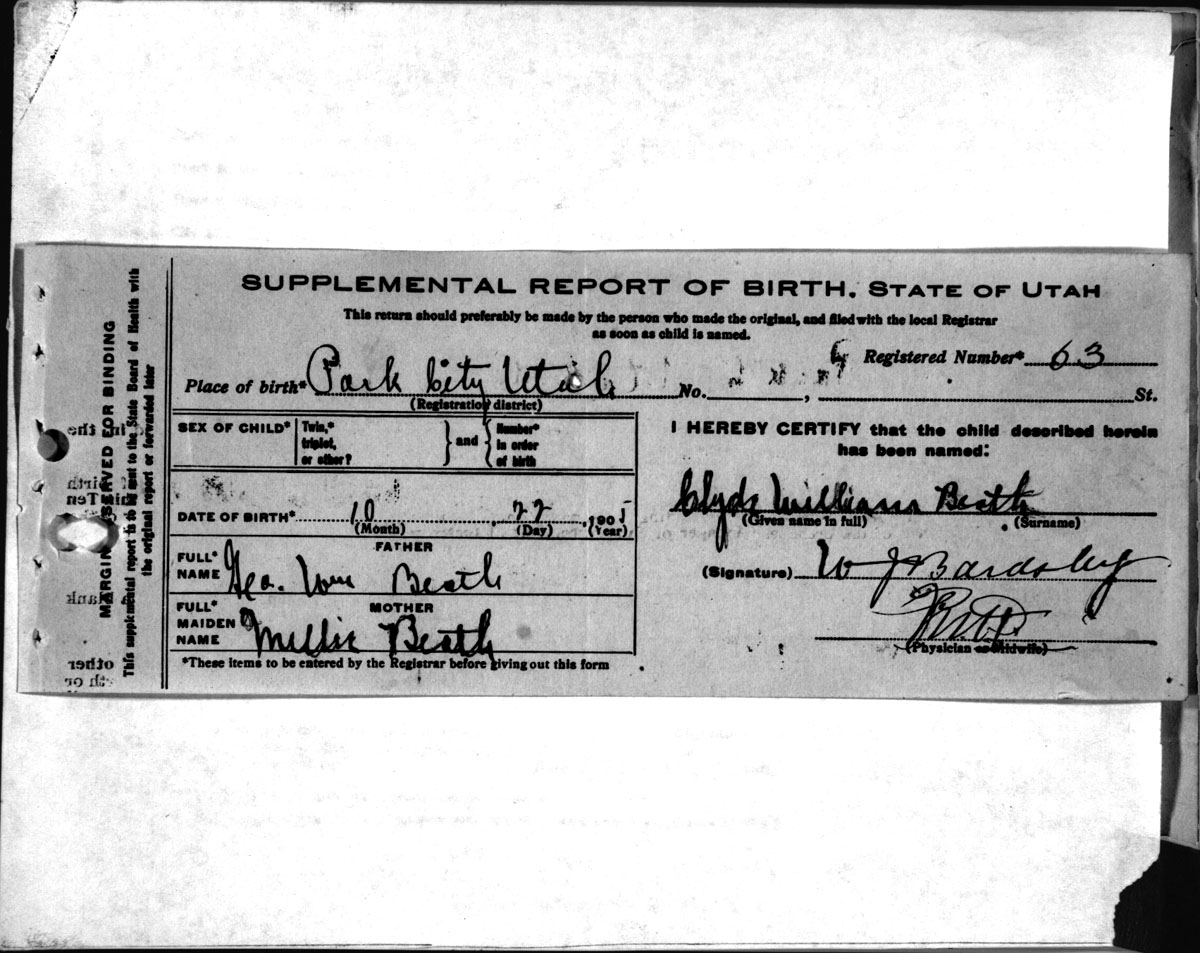 SUPPLEMENTAL REPORT OF BIRTH. STATE OF UTAH
This return should preferably be made by the person who made the original, and filed with the local Registrar
as soon as child is named.
Registered Number* 63
Place of birth* Park City Utah No. , St.
(Registration district)
SEX OF CHILD* Twin,* triplet, or other? } and { Number* in order of birth
DATE OF BIRTH* 10 , 22 , 1905
(Month) (Day) (Year)
FATHER
FULL* NAME Geo. Wm Beath
MOTHER
FULL* MAIDEN NAME Millie Beath
*These items to be entered by the Registrar before giving out this form
I HEREBY CERTIFY that the child described herein
has been named:
Clyde William Beath
(Given name in full) (Surname)
(Signature) W J Bardsley
(Physician or Midwife)
MARGIN RESERVED FOR BINDING
This supplemental report is to be sent to the State Board of Health with
the original report or forwarded later